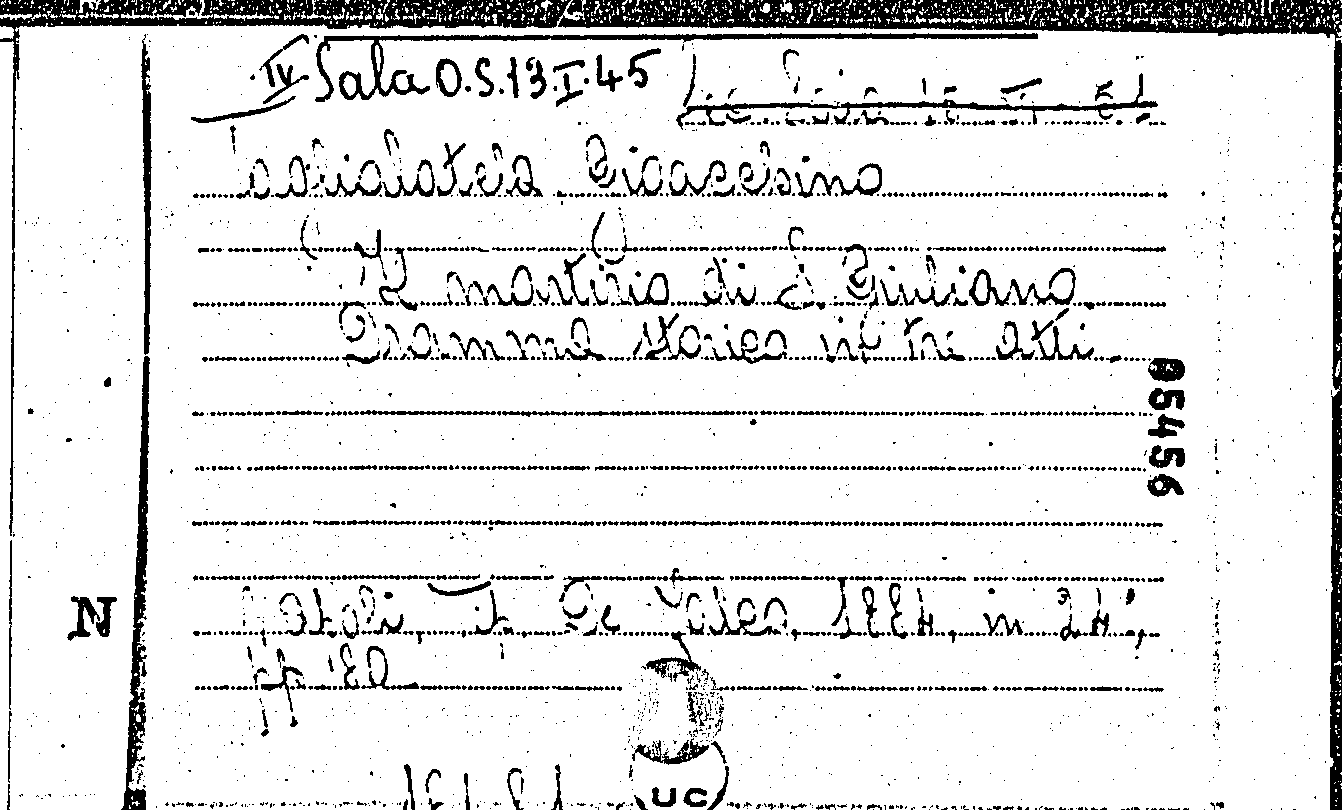 IV Sala O.S.13.I.45
Taglialatela Gioacchino
Il martirio di S. Giuliano.
Dramma storico in tre atti.
05456
N
Napoli, Tip. De 1884, in 24°,
pp. 80
UC